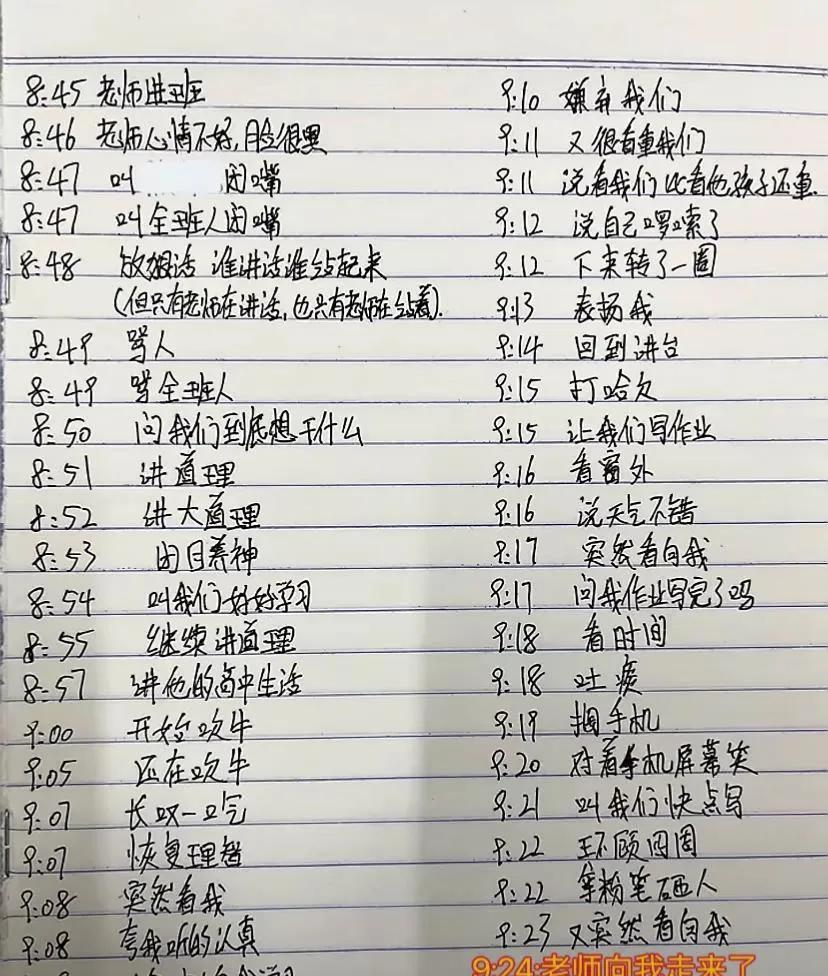 8:45 老师进班
8:46 老师心情不好,脸很黑
8:47 叫 闭嘴
8:47 叫全班人闭嘴
8:48 放狠话 谁讲话谁站起来
(但只有老师在讲话,也只有老师在站着).
8:49 骂人
8:49 骂全班人
8:50 问我们到底想干什么
8:51 讲道理
8:52 讲大道理
8:53 闭目养神
8:54 叫我们好好学习
8:55 继续讲道理
8:57 讲他的高中生活
9:00 开始吹牛
9:05 还在吹牛
9:07 长叹一口气
9:07 恢复理智
9:08 突然看我
9:08 夸我听的认真
9:10 嫌弃我们
9:11 又很看重我们
9:11 说看我们比看他孩子还重.
9:12 说自己啰嗦了
9:12 下来转了一圈
9:13 表扬我
9:14 回到讲台
9:15 打哈欠
9:15 让我们写作业
9:16 看窗外
9:16 说天气不错
9:17 突然看向我
9:17 问我作业写完了吗
9:18 看时间
9:18 吐痰
9:19 掏手机
9:20 对着手机屏幕笑
9:21 叫我们快点写
9:22 环顾四周
9:22 拿粉笔砸人
9:23 又突然看向我
9:24:老师向我走来了